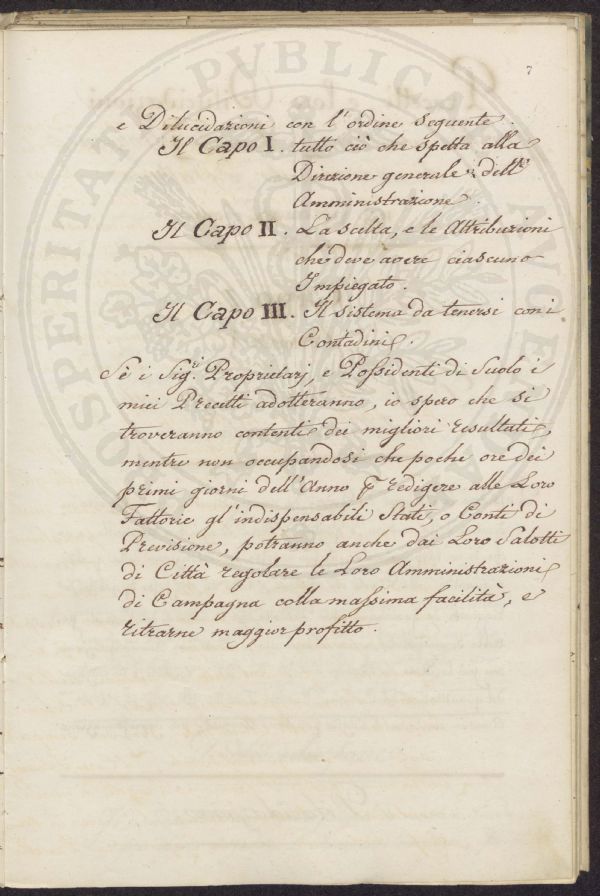 7
e Dilucidazioni con l'ordine seguente.
Il Capo I. tutto ciò che spetta alla
Direzione generale dell'
Amministrazione.
Il Capo II. La scelta, e le Attribuzioni
che deve avere ciascuno
Impiegato.
Il Capo III. Il sistema da tenersi con i
Contadini.
Sè i Sig.ri Proprietarj, e Possidenti di Suolo i
miei Precetti adotteranno, io spero che si
troveranno contenti dei migliori resultati,
mentre non occupandosi che poche ore dei
primi giorni dell'Anno p redigere alle Loro
Fattorie gl'indispensabili Stati, o Conti di
Previsione, potranno anche dai Loro Salotti
di Città regolare le Loro Amministrazioni
di Campagna colla massima facilità, e
ritrarne maggior profitto.
PUBLICAE
PROSPERITATIS